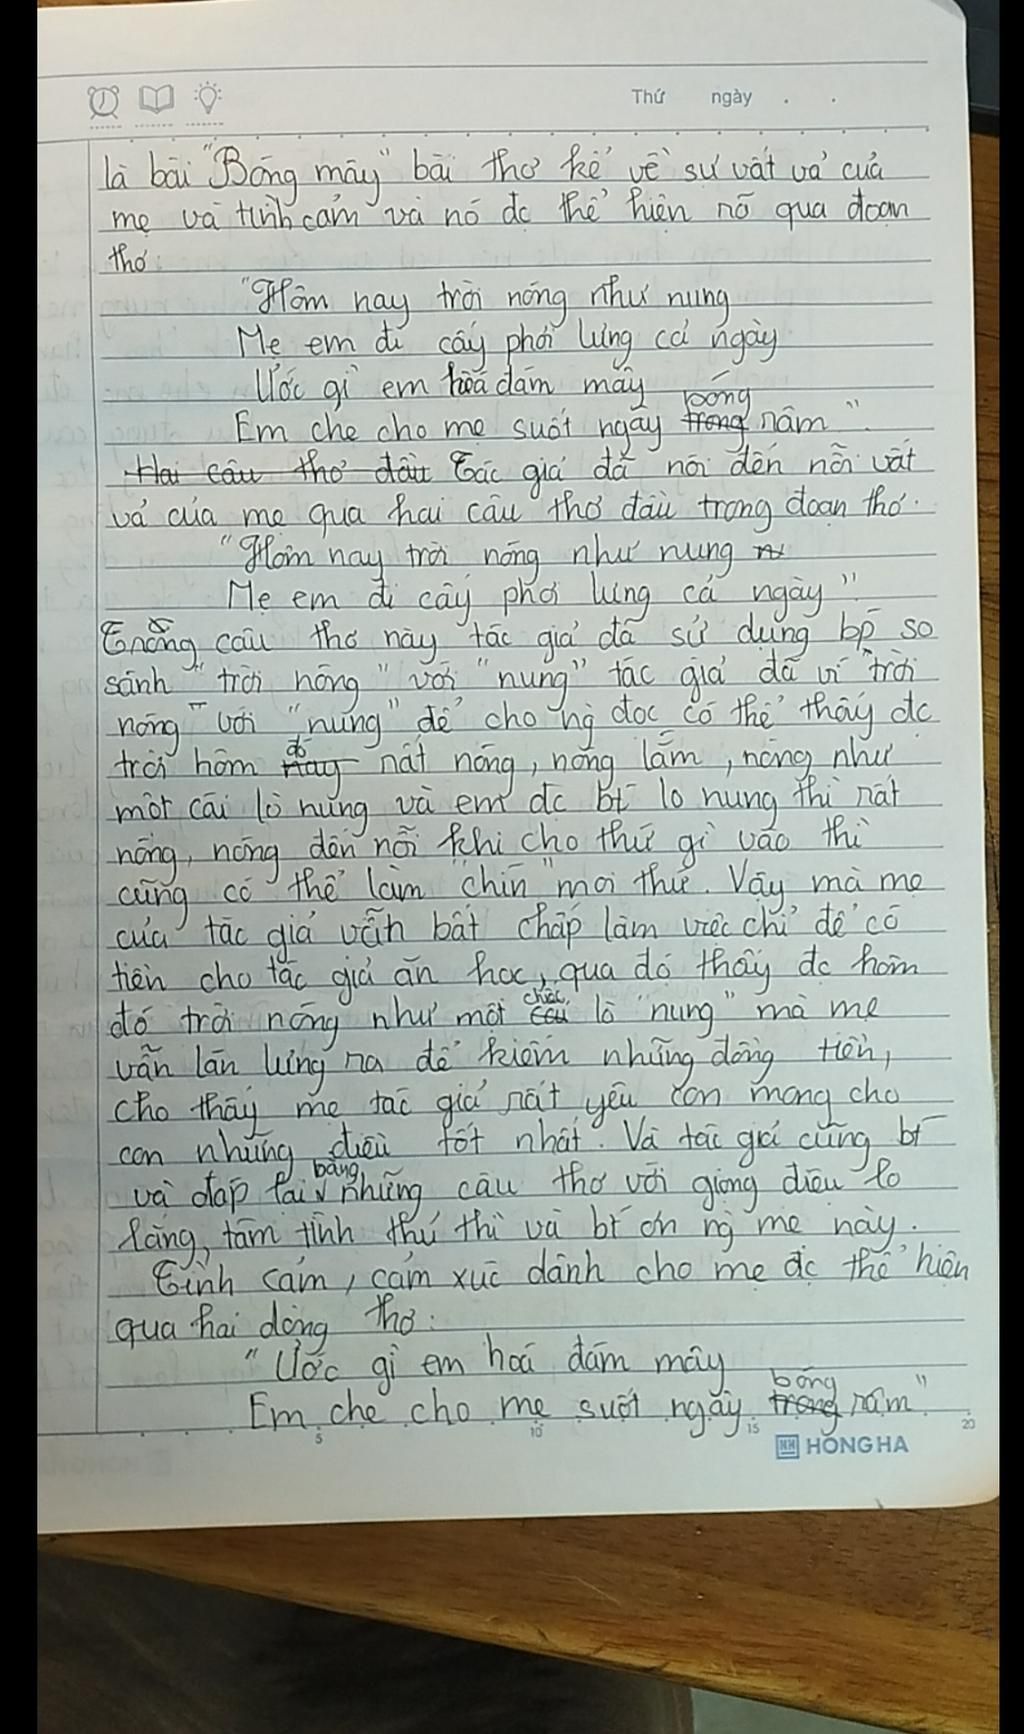 Thứ ngày . .
là bài "Bóng mây" bài thơ kể về sự vất vả của
mẹ và tình cảm và nó đc thể hiện rõ qua đoạn
thơ:
"Hôm nay trời nóng như nung
Mẹ em đi cấy phơi lưng cả ngày
Ước gì em hoá đám mây
Em che cho mẹ suốt ngày trong bóng râm".
Hai câu thơ đầu Tác giả đã nói đến nỗi vất
vả của mẹ qua hai câu thơ đầu trong đoạn thơ.
"Hôm nay trời nóng như nung
Mẹ em đi cấy phơi lưng cả ngày".
câu thơ này tác giả đã sử dụng bp so
sánh "trời nóng" với "nung" tác giả đã ví "trời
nóng" với "nung" để cho ng đọc có thể thấy đc
trời hôm nay đó rất nóng, nóng lắm, nóng như
một cái lò nung và em đc bt lò nung thì rất
nóng, nóng đến nỗi khi cho thứ gì vào thì
cũng có thể làm "chín" mọi thứ. Vậy mà mẹ
của tác giả vẫn bất chấp làm việc chỉ để có
tiền cho tác giả ăn học, qua đó thấy đc hôm
đó trời nóng như một chiếc lò "nung" mà mẹ
vẫn lăn lưng ra để kiếm những đồng tiền,
cho thấy mẹ tác giả rất yêu con mong cho
con những điều tốt nhất. Và tác giả cũng bt
và đáp lại bằng những câu thơ với giọng điệu lo
lắng, tâm tình thủ thỉ và bt ơn ng mẹ này.
Tình cảm, cảm xúc dành cho mẹ đc thể hiện
qua hai dòng thơ:
"Ước gì em hoá đám mây
Em che cho mẹ suốt ngày trong bóng râm".
5 10 15 20
HONG HA